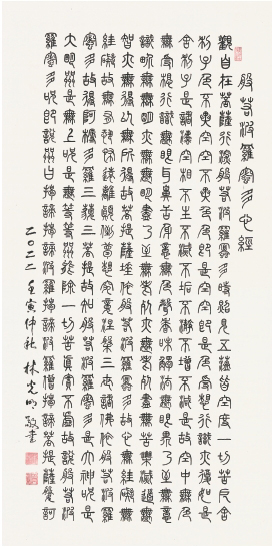 般若波羅蜜多心經
觀自在菩薩行深般若波羅蜜多時照見五蘊皆空度一切苦厄舍
利子色不異空空不異色色即是空空即是色受想行識亦復如是
舍利子是諸法空相不生不滅不垢不淨不增不減是故空中無色
無受想行識無眼耳鼻舌身意無色聲香味觸法無眼界乃至無意
識界無無明亦無無明盡乃至無老死亦無老死盡無苦集滅道無
智亦無得以無所得故菩提薩埵依般若波羅蜜多故心無罣礙無
罣礙故無有恐怖遠離顛倒夢想究竟涅槃三世諸佛依般若波羅
蜜多故得阿耨多羅三藐三菩提故知般若波羅蜜多是大神咒是
大明咒是無上咒是無等等咒能除一切苦真實不虛故說般若波
羅蜜多咒即說咒曰揭諦揭諦波羅揭諦波羅僧揭諦菩提薩婆訶
二〇二二壬寅仲秋林光明敬書